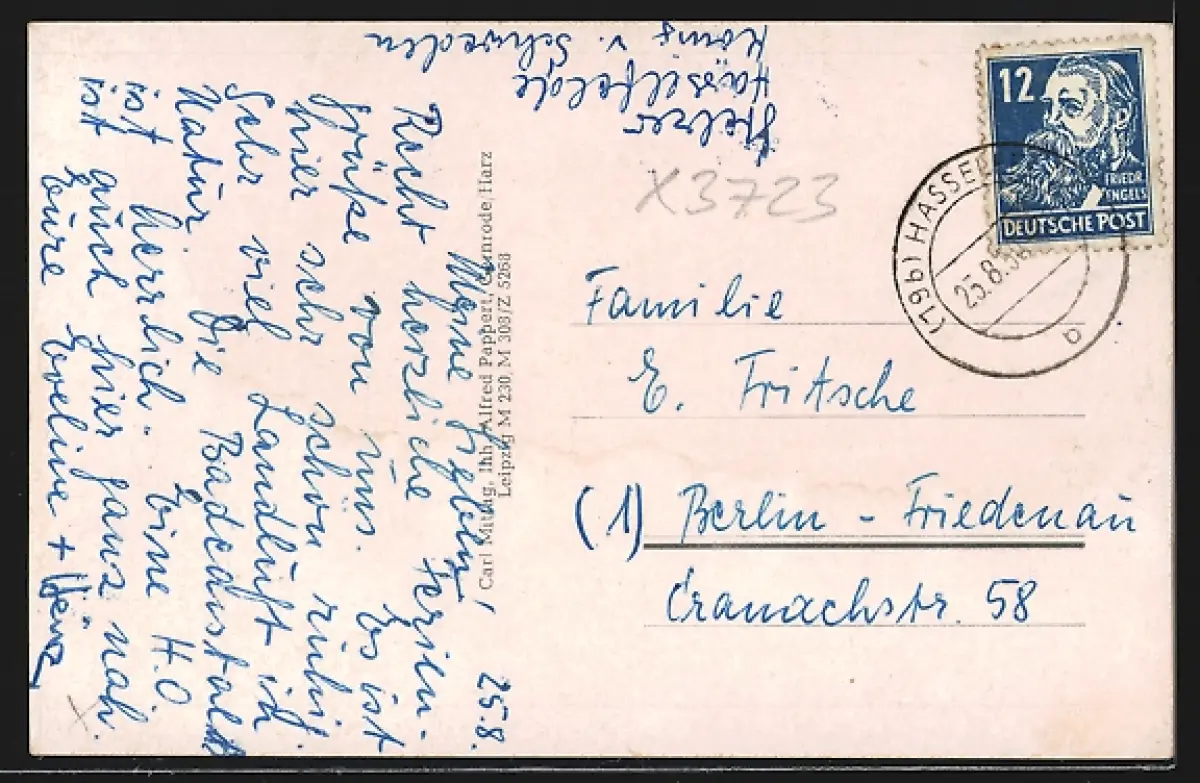 Stelzer
Hasselfelde
König v. Schweden
25.8.
Meine Lieben!
Recht herzliche Ferien-
grüße von uns. Es ist
hier sehr schön ruhig.
Sehr viel Landluft in
Natur. Die Badeanstalt
ist herrlich. Eine H.O.
ist auch hier ganz nah.
Eure Eveline + Heinz
X
Carl Mittag, Inh. Alfred Pappert, Gernrode, Harz
Leipzig M 230, M 308/Z 5268
X3723
12
FRIEDR.
ENGELS
DEUTSCHE POST
(19b) HASSEL
25.8.5
b
Familie
E. Fritsche
(1) Berlin - Friedenau
Cranachstr. 58